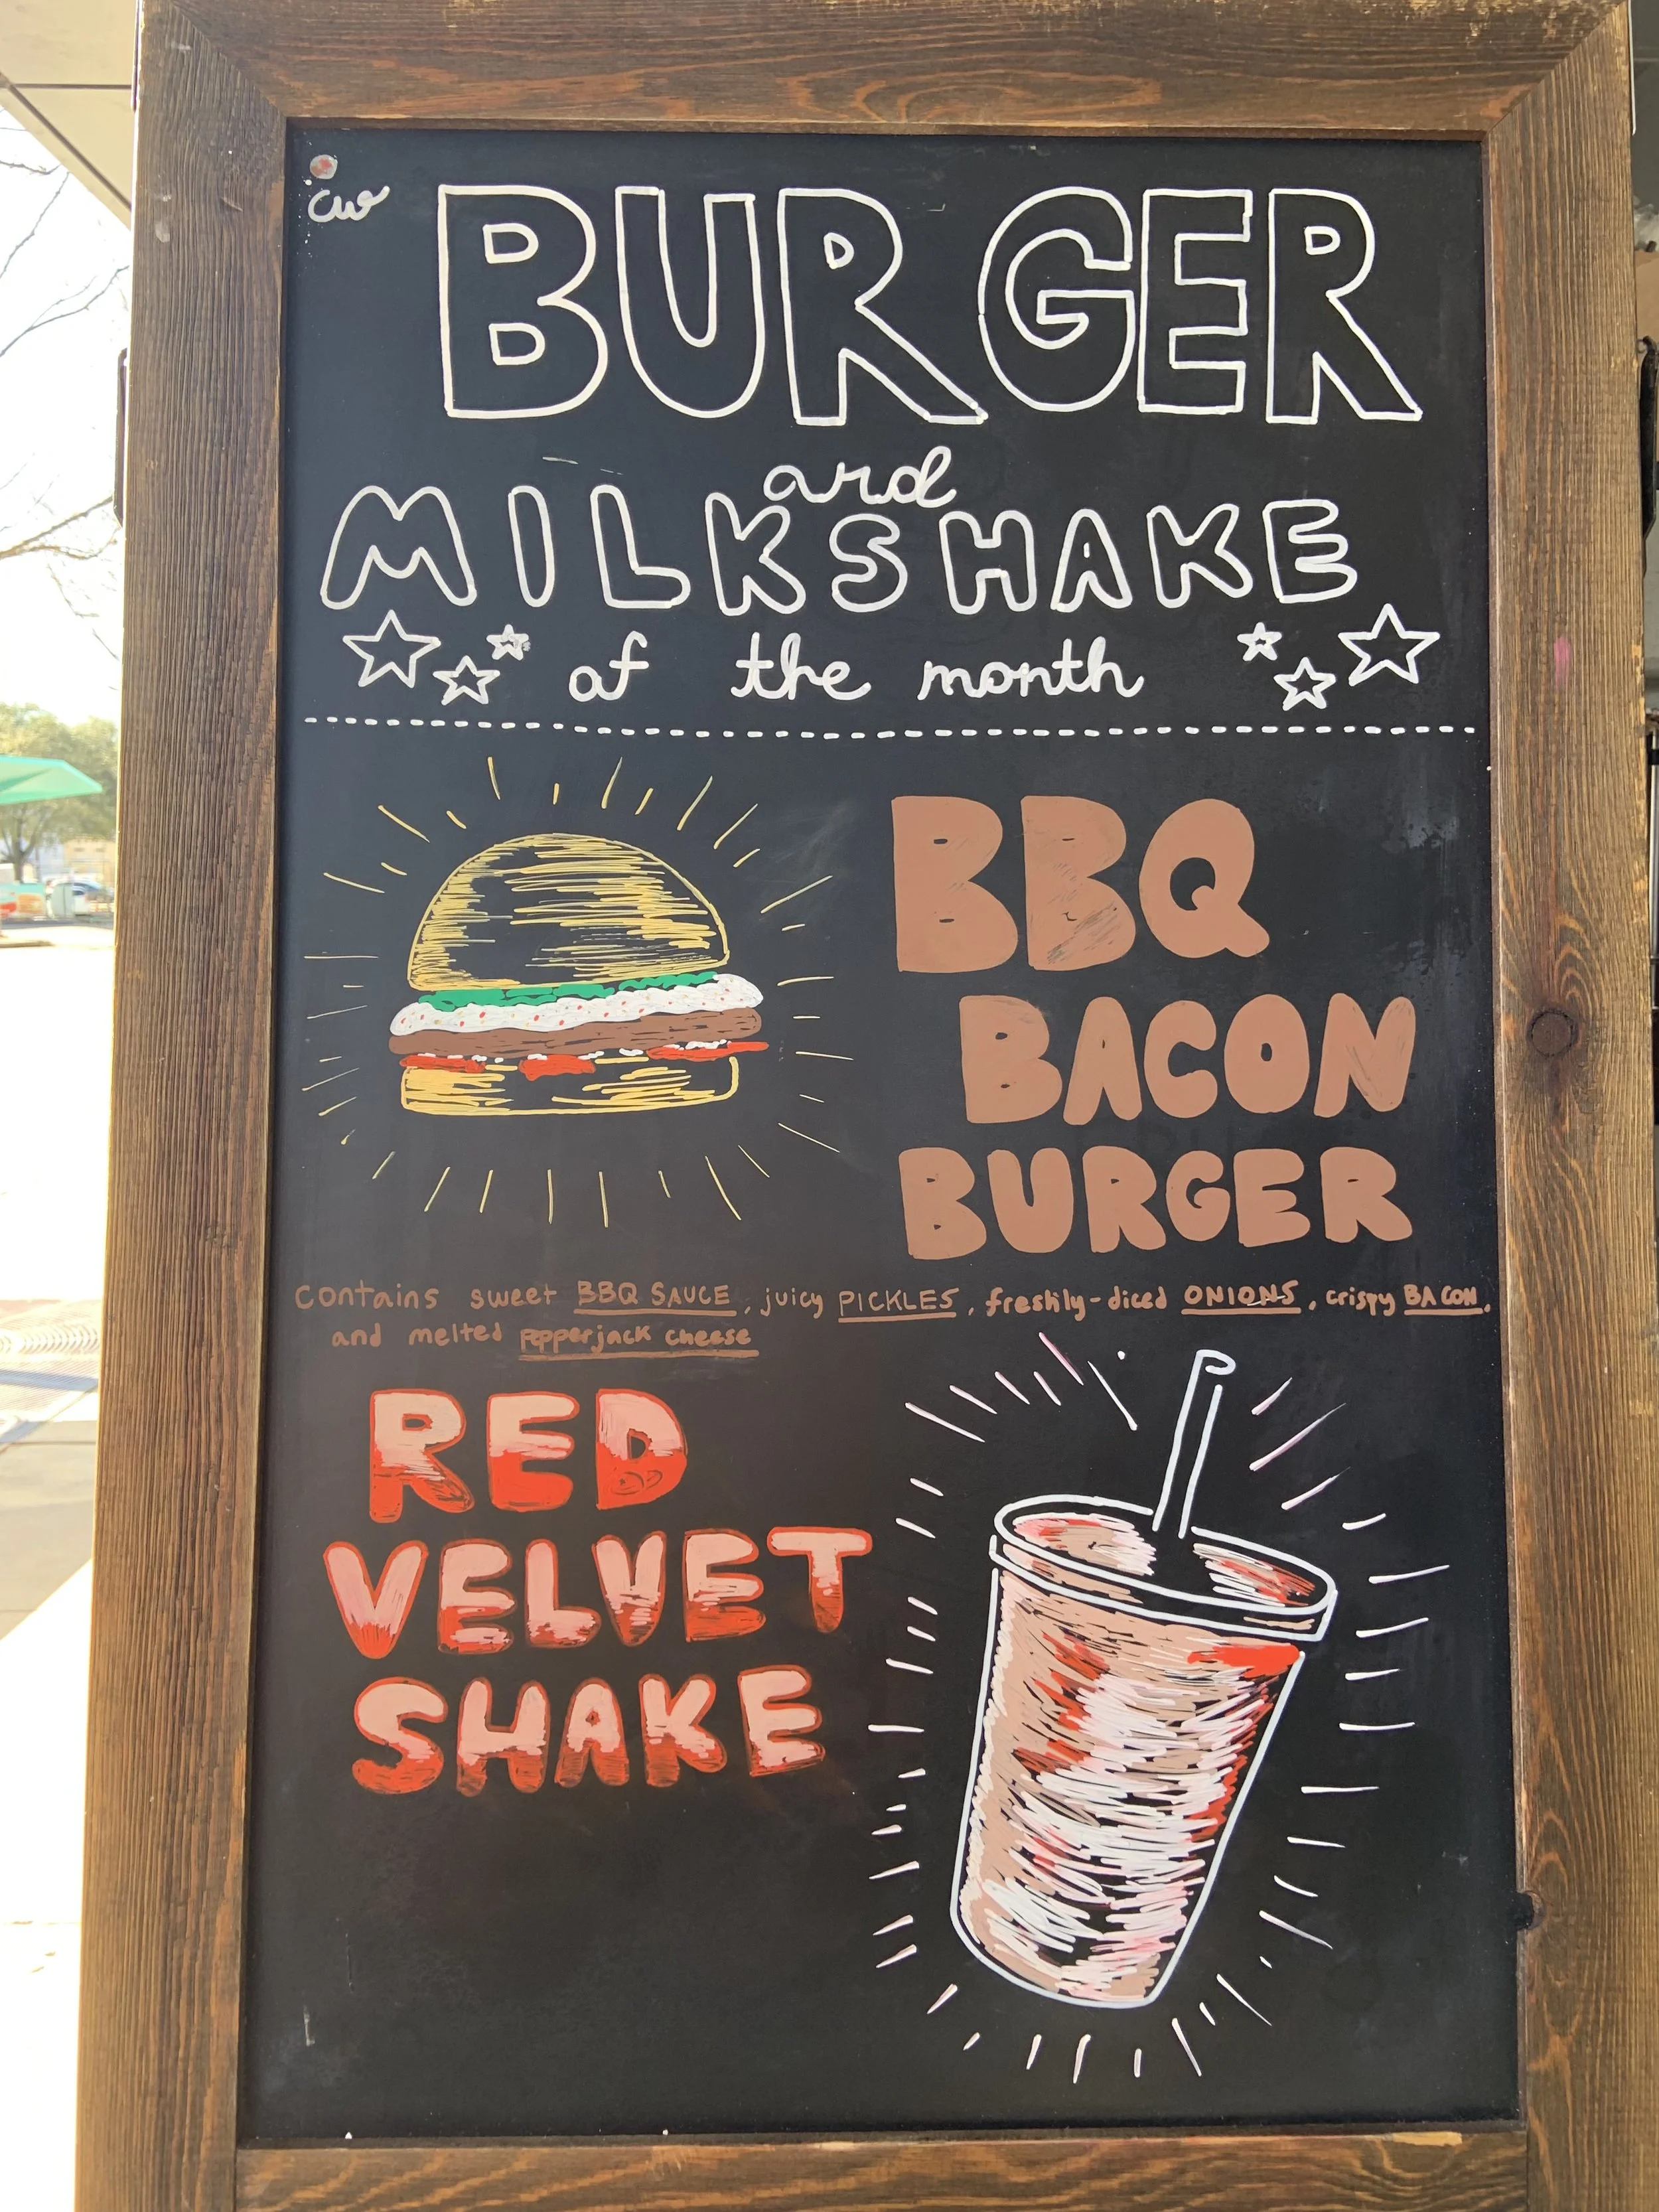 cw
BURGER
and
MILKSHAKE
of the month
BBQ
BACON
BURGER
Contains sweet BBQ SAUCE, juicy PICKLES, freshly-diced ONIONS, crispy BACON,
and melted pepperjack cheese
RED
VELVET
SHAKE